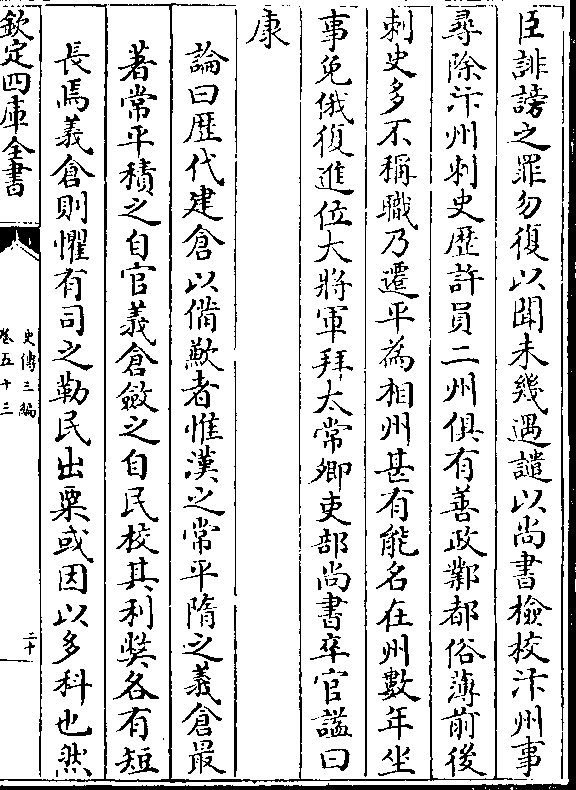 臣誹謗之罪勿復以聞未幾遇譴以尚書檢校汴州事
尋除汴州刺史歴許員二州俱有善政鄴都俗薄前後
刺史多不稱職乃遷平為相州甚有能名在州數年坐
事免俄復進位大將軍拜太常卿吏部尚書卒官諡曰
康
論曰歴代建倉以備歉者惟漢之常平隋之義倉最
著常平積之自官義倉斂之自民校其利獘各有短
長焉義倉則懼有司之勒民出粟或因以多科也然
欽定四庫全書
史傳三編
卷五十三
二十